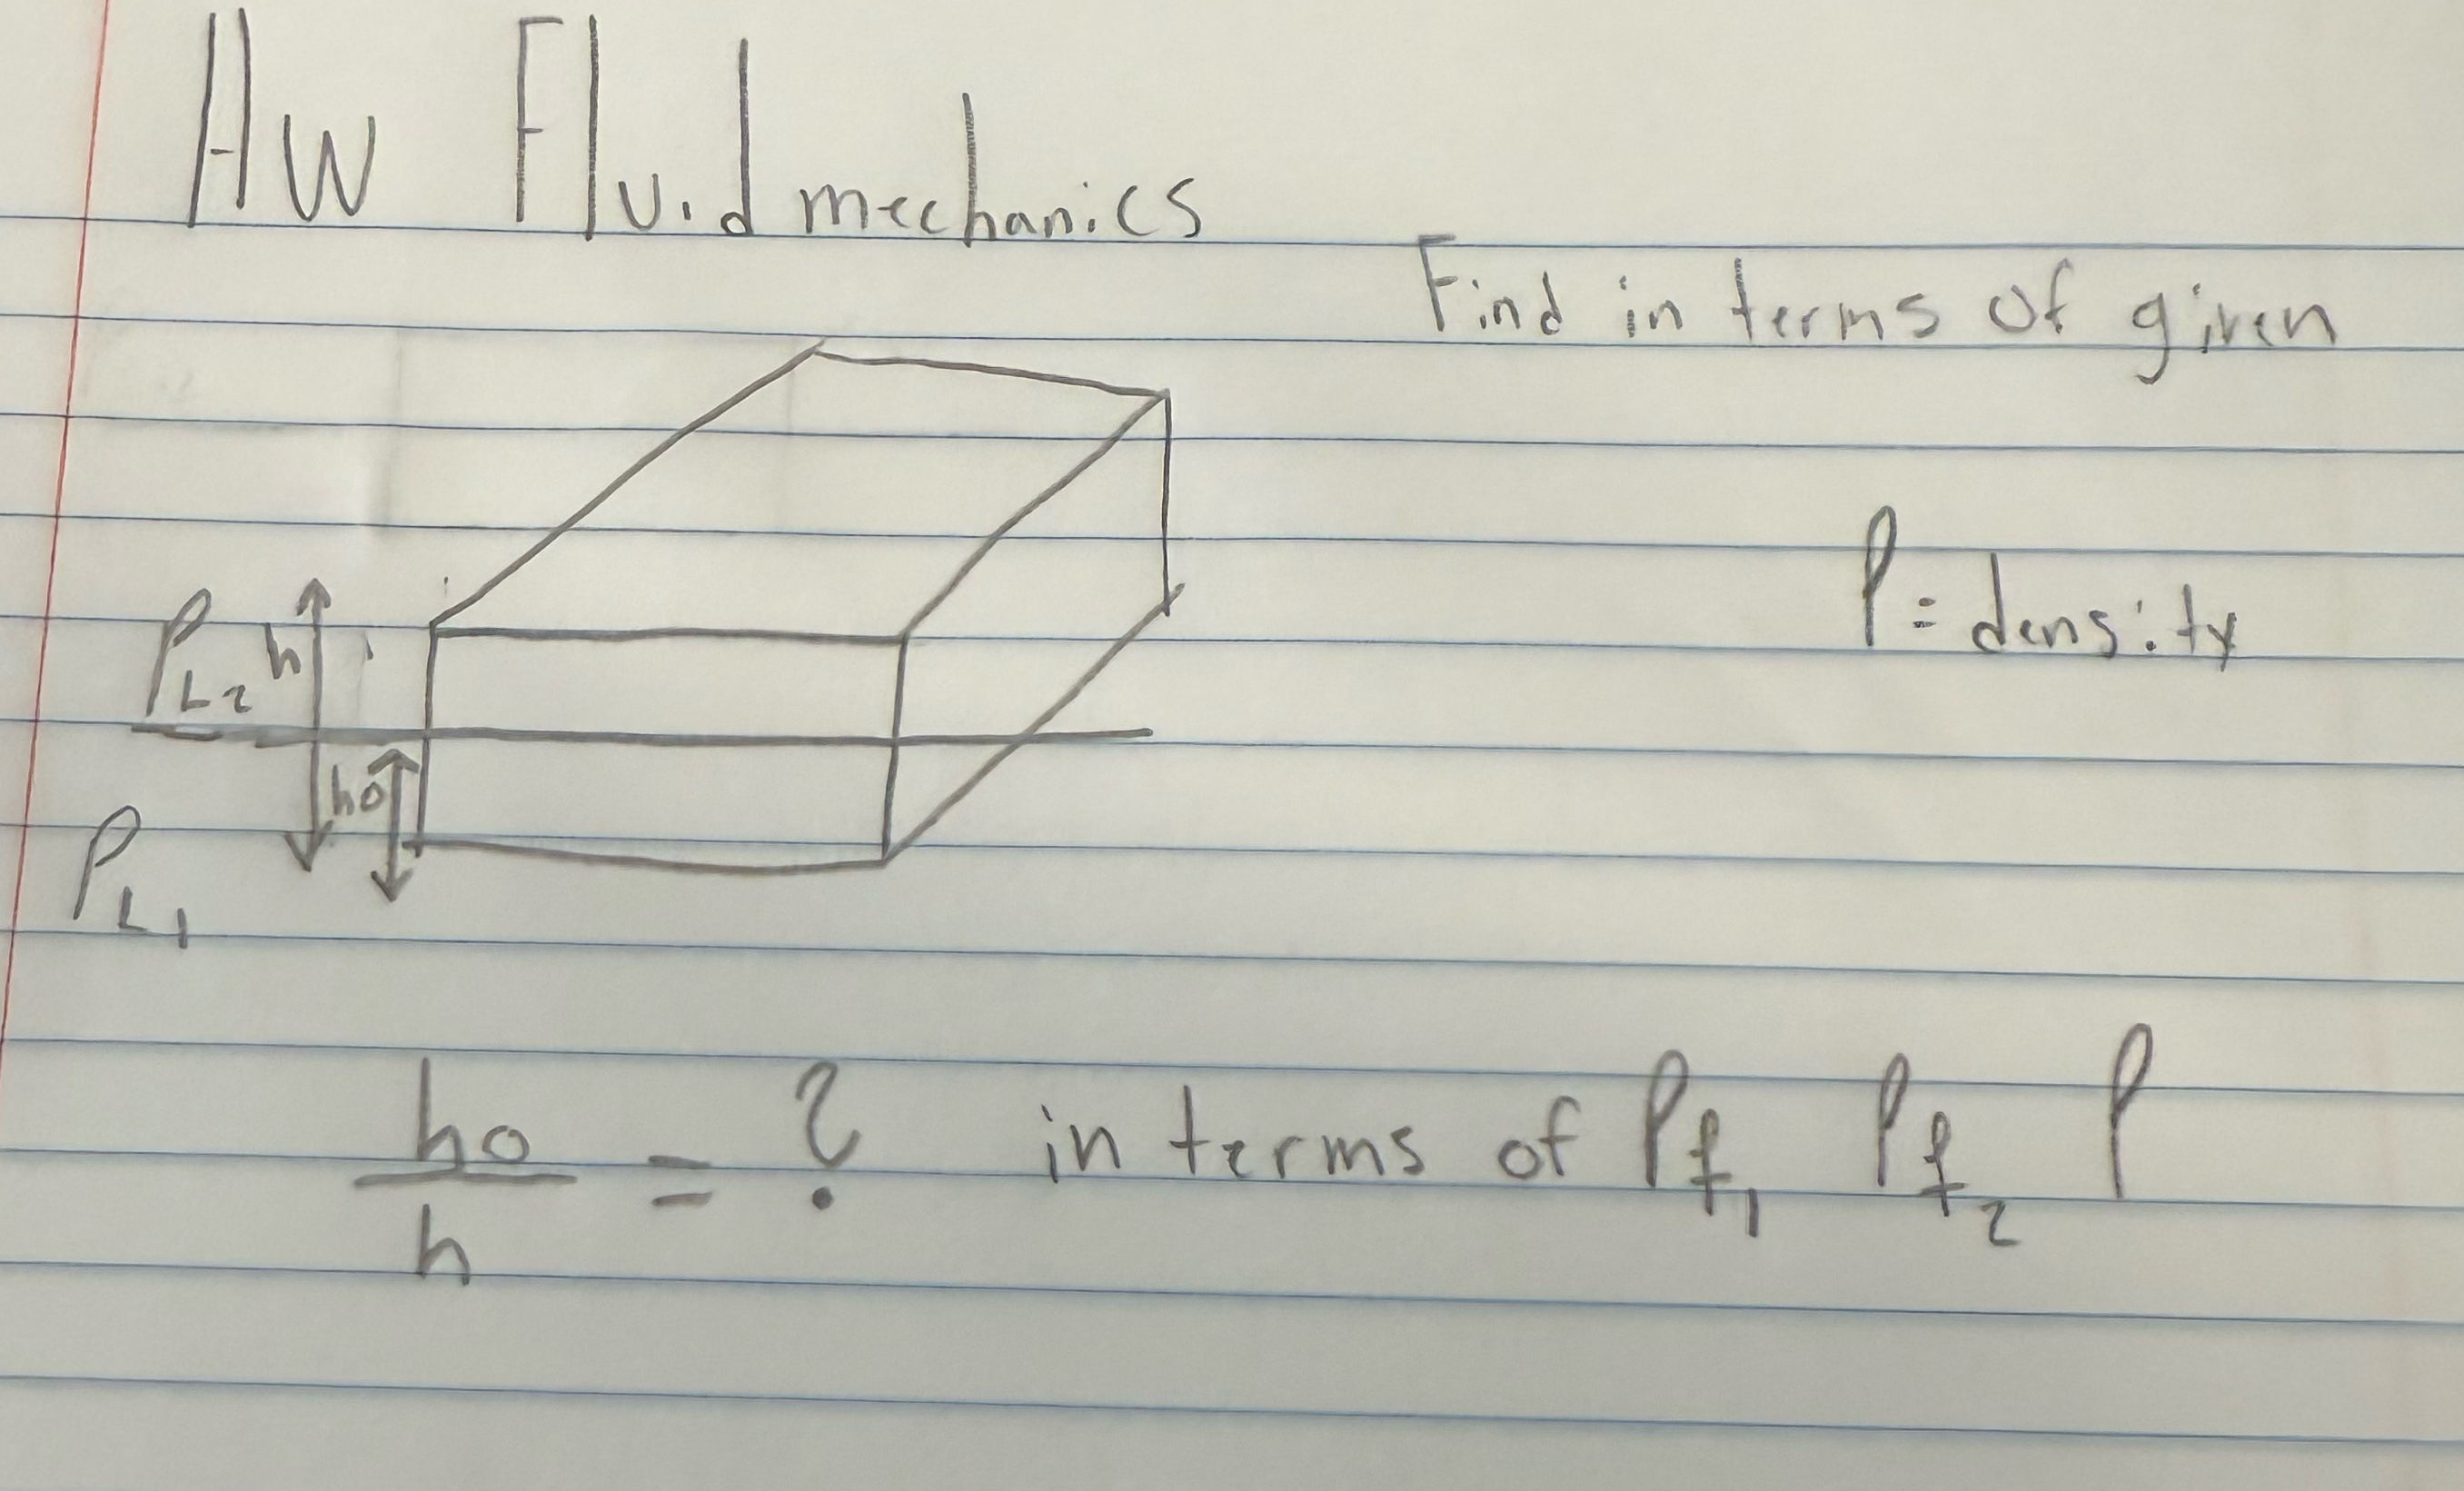 HW Fluid mechanics
Find in terms of given
ρ = density
ρL2 h
h0
ρL1
h0/h = ? in terms of ρf1 ρf2 ρ